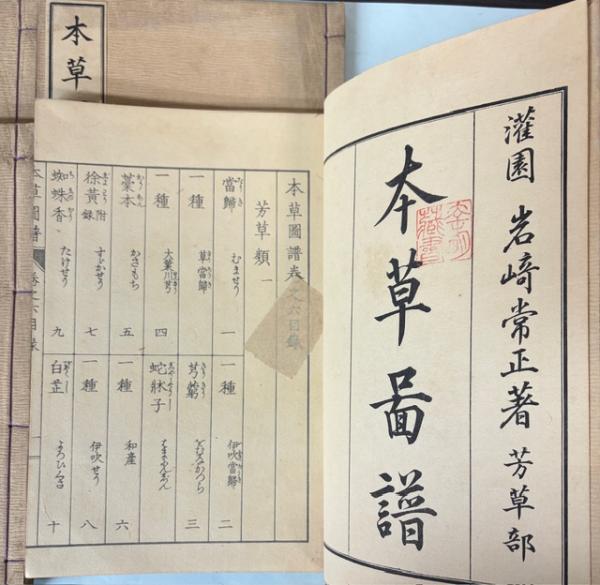 灌園 岩﨑常正著 芳草部
本草啚譜
藏書
本草圖譜卷之六目録
芳草類 一
當歸 むませり 一 一種 伊吹當歸 二
一種 草當歸 芎藭 をむなかづら 三
一種 大葉川芎 四 蛇牀子
藁本 かさもち 五 一種 和産 六
徐黃 附録 すゞかぜり 七 一種 伊吹せり 八
蜘蛛香 たけせり 九 白芷 よろひぐさ 十
本草圖譜 卷之六目録
本草